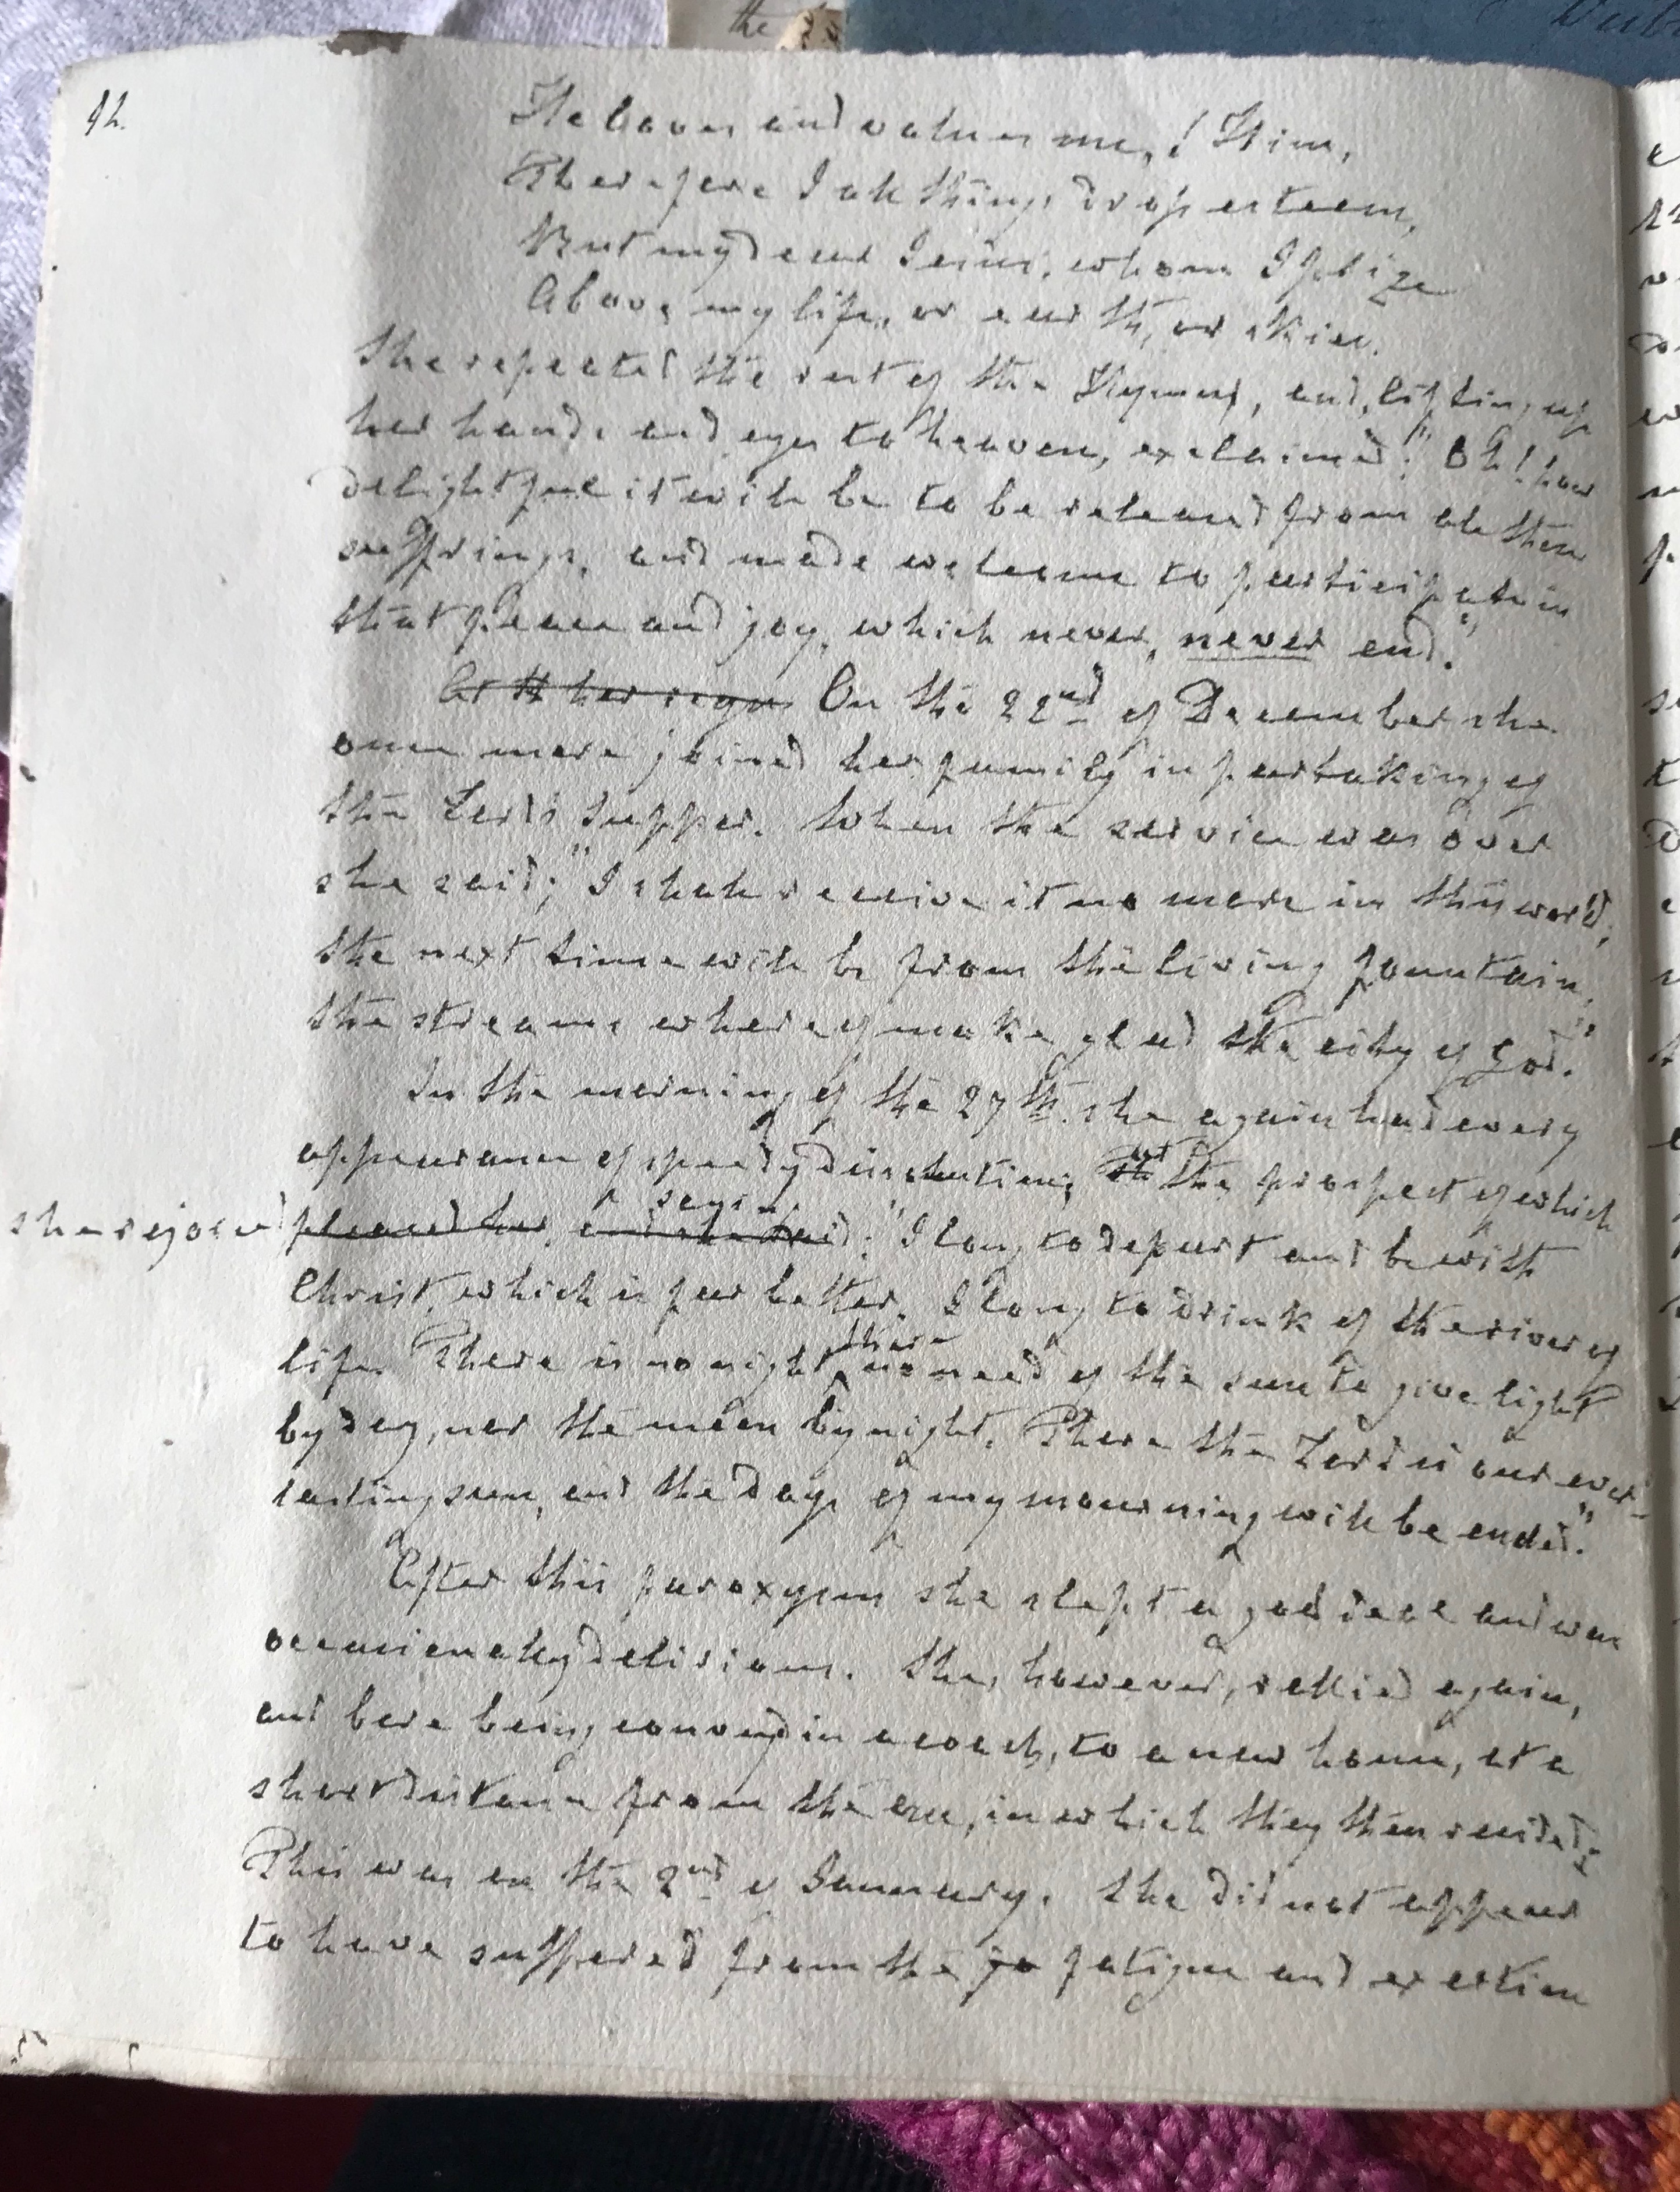 92.
He loves and values me, I Him,
Therefore I all things dross esteem,
But my dear Jesus, whom I prize
Above my life, or earth, or skies.
She repeated the rest of the Hymn, and, lifting up
her hands and eyes to heaven, exclaimed; "Oh! how
delightful it will be to be released from all these
suffrings, and made welcome to participate in
that peace and joy, which never, never end."
At her reque On the 22nd of December she
once more joined her family in partaking of
the Lord's Supper. When the service was over
she said; "I shall receive it no more in this world;
the next time will be from the living fountain,
the streams whereof make glad the city of God."
In the morning of the 27th. she again had every
appearance of speedy dissolution; at the prospect of which
she rejoiced pleased her, and she said saying: "I long to depart and be with
Christ, which is far better. I long to drink of the river of
life. There is no night there no need of the sun to give light
by day, nor the moon by night. There the Lord is our ever-
lasting sun, and the days of my mourning will be ended."
After this paroxysm she slept a good deal and was
occasionally delirious. She, however, rallied again,
and bore being conveyed in a coach, to a new house, at a
short distance from the one, in which they then resided;
This was on the 2nd of January. She did not appear
to have suffered from the fatigue and exertion